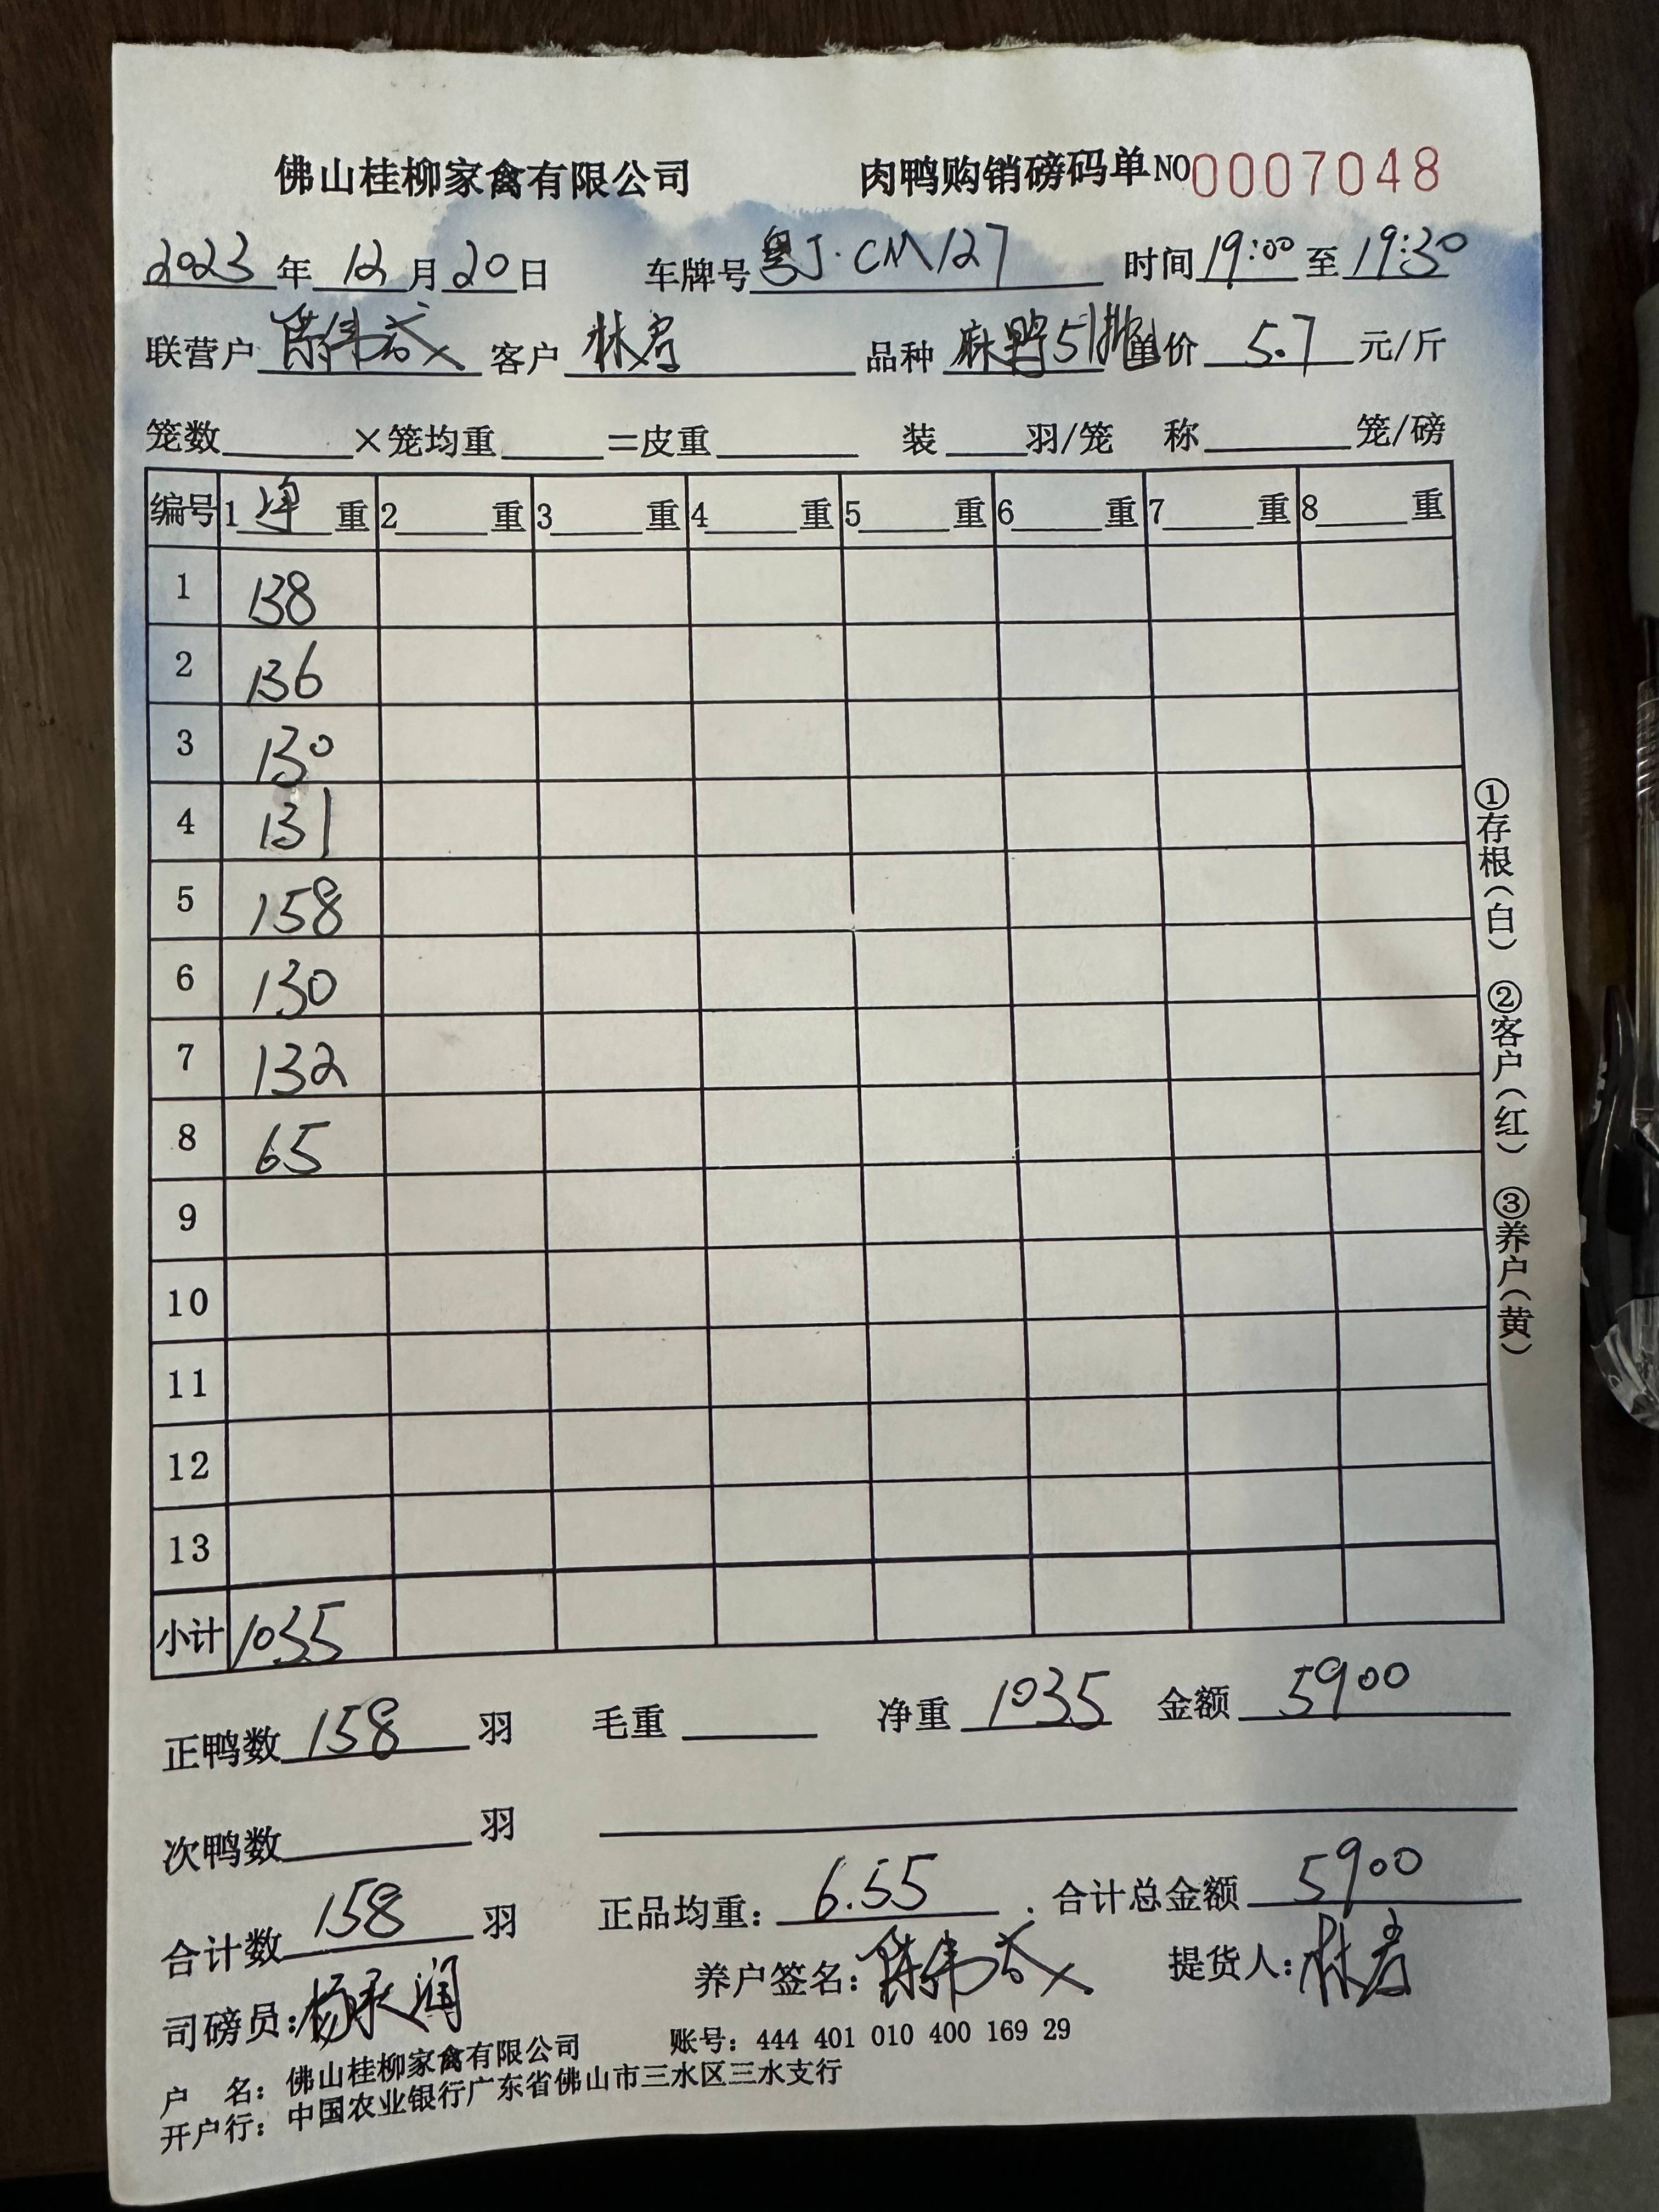 佛山桂柳家禽有限公司 肉鸭购销磅码单 NO 0007048
2023年12月20日 车牌号 粤J·CM127 时间 19:00 至 19:30
联营户 客户 林 品种 麻鸭51 单价 5.7 元/斤
笼数 ×笼均重 =皮重 装 羽/笼 称 笼/磅
编号 1 净 重 2 重 3 重 4 重 5 重 6 重 7 重 8 重
1 138
2 136
3 130
4 131
5 158
6 130
7 132
8 65
9
10
11
12
13
小计 1035
①存根(白) ②客户(红) ③养户(黄)
正鸭数 158 羽 毛重 净重 1035 金额 5900
次鸭数 羽
合计数 158 羽 正品均重: 6.55 合计总金额 5900
司磅员: 杨 润 养户签名: 提货人: 林
户 名: 佛山桂柳家禽有限公司 账号: 444 401 010 400 169 29
开户行: 中国农业银行广东省佛山市三水区三水支行